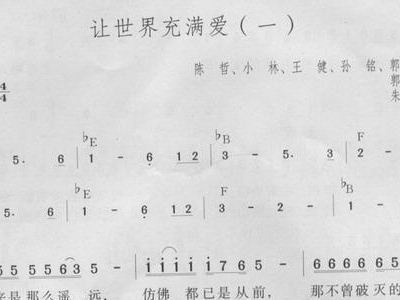 让世界充满爱（一）
陈 哲、小 林、王 健、孙 铭、郭
郭
4
4
朱
♭E ♭B F
5. 6 1 - 6 1 2 3 - 5. 3 2 -
♭E F ♭B
5. 6 1 - 6 1 2 3 - 2. 3 1 -
5 5 5 6 3 5 - i i i i 7 6 5 - 6 6 6 6 6 5
是那么遥 远， 仿佛 都已是从前， 那不曾破灭的